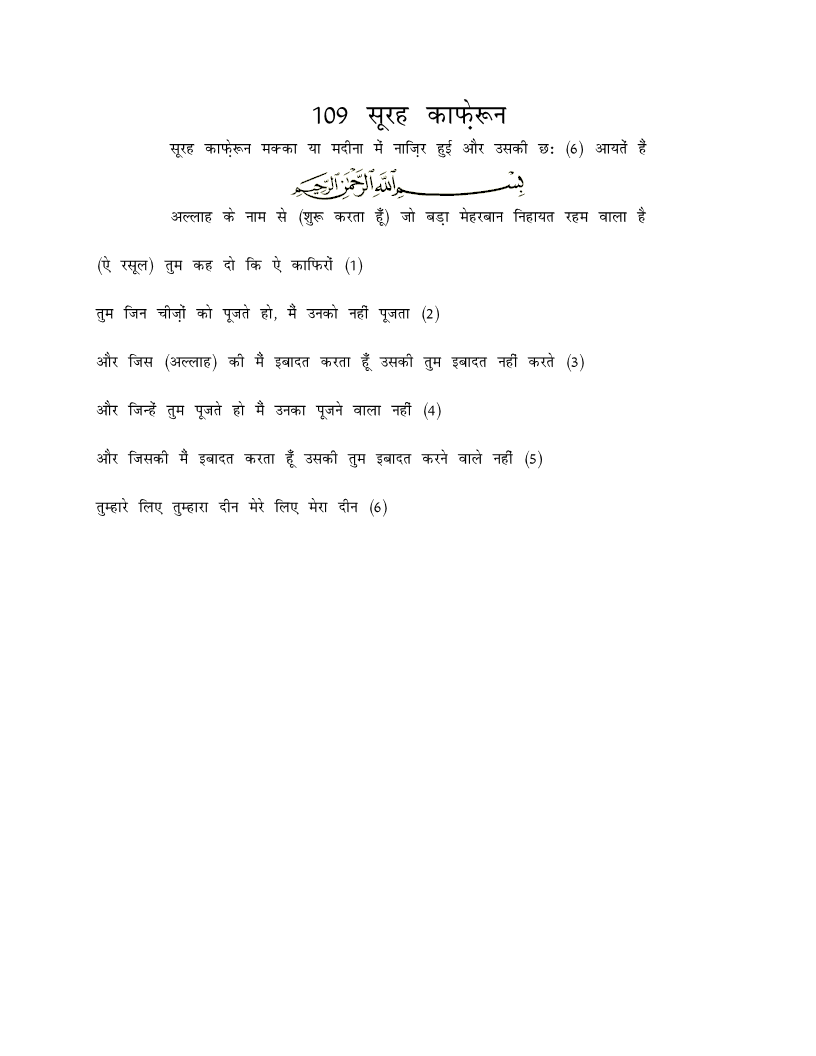 109 सूरह काफ़ेरून
सूरह काफ़ेरून मक्का या मदीना में नाज़िर हुई और उसकी छ: (6) आयतें हैं
بِسْمِ ٱللَّهِ ٱلرَّحْمَٰنِ ٱلرَّحِيمِ
अल्लाह के नाम से (शुरू करता हूँ) जो बड़ा मेहरबान निहायत रहम वाला है
(ऐ रसूल) तुम कह दो कि ऐ काफिरों (1)
तुम जिन चीज़ों को पूजते हो, मैं उनको नहीं पूजता (2)
और जिस (अल्लाह) की मैं इबादत करता हूँ उसकी तुम इबादत नहीं करते (3)
और जिन्हें तुम पूजते हो मैं उनका पूजने वाला नहीं (4)
और जिसकी मैं इबादत करता हूँ उसकी तुम इबादत करने वाले नहीं (5)
तुम्हारे लिए तुम्हारा दीन मेरे लिए मेरा दीन (6)